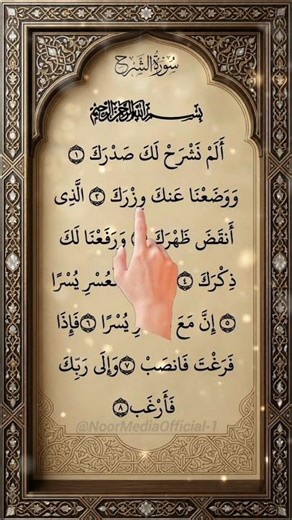 سُورَةُ الشَّرْحِ
بِسْمِ اللَّهِ الرَّحْمَٰنِ الرَّحِيمِ
أَلَمْ نَشْرَحْ لَكَ صَدْرَكَ ١
وَوَضَعْنَا عَنكَ وِزْرَكَ ٢ الَّذِى
أَنقَضَ ظَهْرَكَ وَرَفَعْنَا لَكَ
ذِكْرَكَ ٤ لْعُسْرِ يُسْرًا
٥ إِنَّ مَعَ رِ يُسْرًا ٦ فَإِذَا
فَرَغْتَ فَانصَبْ ٧ وَإِلَى رَبِّكَ
فَٱرْغَب ٨
@NoorMediaOfficial-1